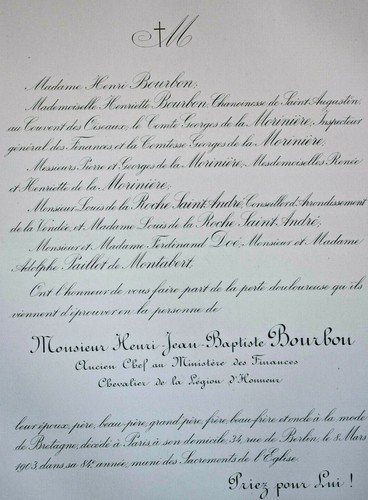 M
Madame Henri Bourbon,
Mademoiselle Henriette Bourbon, Chanoinesse de Saint Augustin
au Couvent des Oiseaux, le Comte Georges de la Morinière, Inspecteur
général des Finances et la Comtesse Georges de la Morinière,
Messieurs Pierre et Georges de la Morinière, Mesdemoiselles Renée
et Henriette de la Morinière,
Monsieur Louis de la Roche Saint André, Conseiller d'Arrondissement
de la Vendée, et Madame Louis de la Roche Saint André,
Monsieur et Madame Ferdinand Doé, Monsieur et Madame
Adolphe Paillot de Montabert,
Ont l'honneur de vous faire part de la perte douloureuse qu'ils
viennent d'éprouver en la personne de
Monsieur Henri-Jean-Baptiste Bourbon
Ancien Chef au Ministère des Finances
Chevalier de la Légion d'Honneur
leur époux, père, beau-père, grand-père, frère, beau-frère et oncle à la mode
de Bretagne, décédé à Paris, à son domicile, 34, rue de Berlin, le 8 Mars
1903, dans sa 84e année, muni des Sacrements de l'Église.
Priez pour Lui !